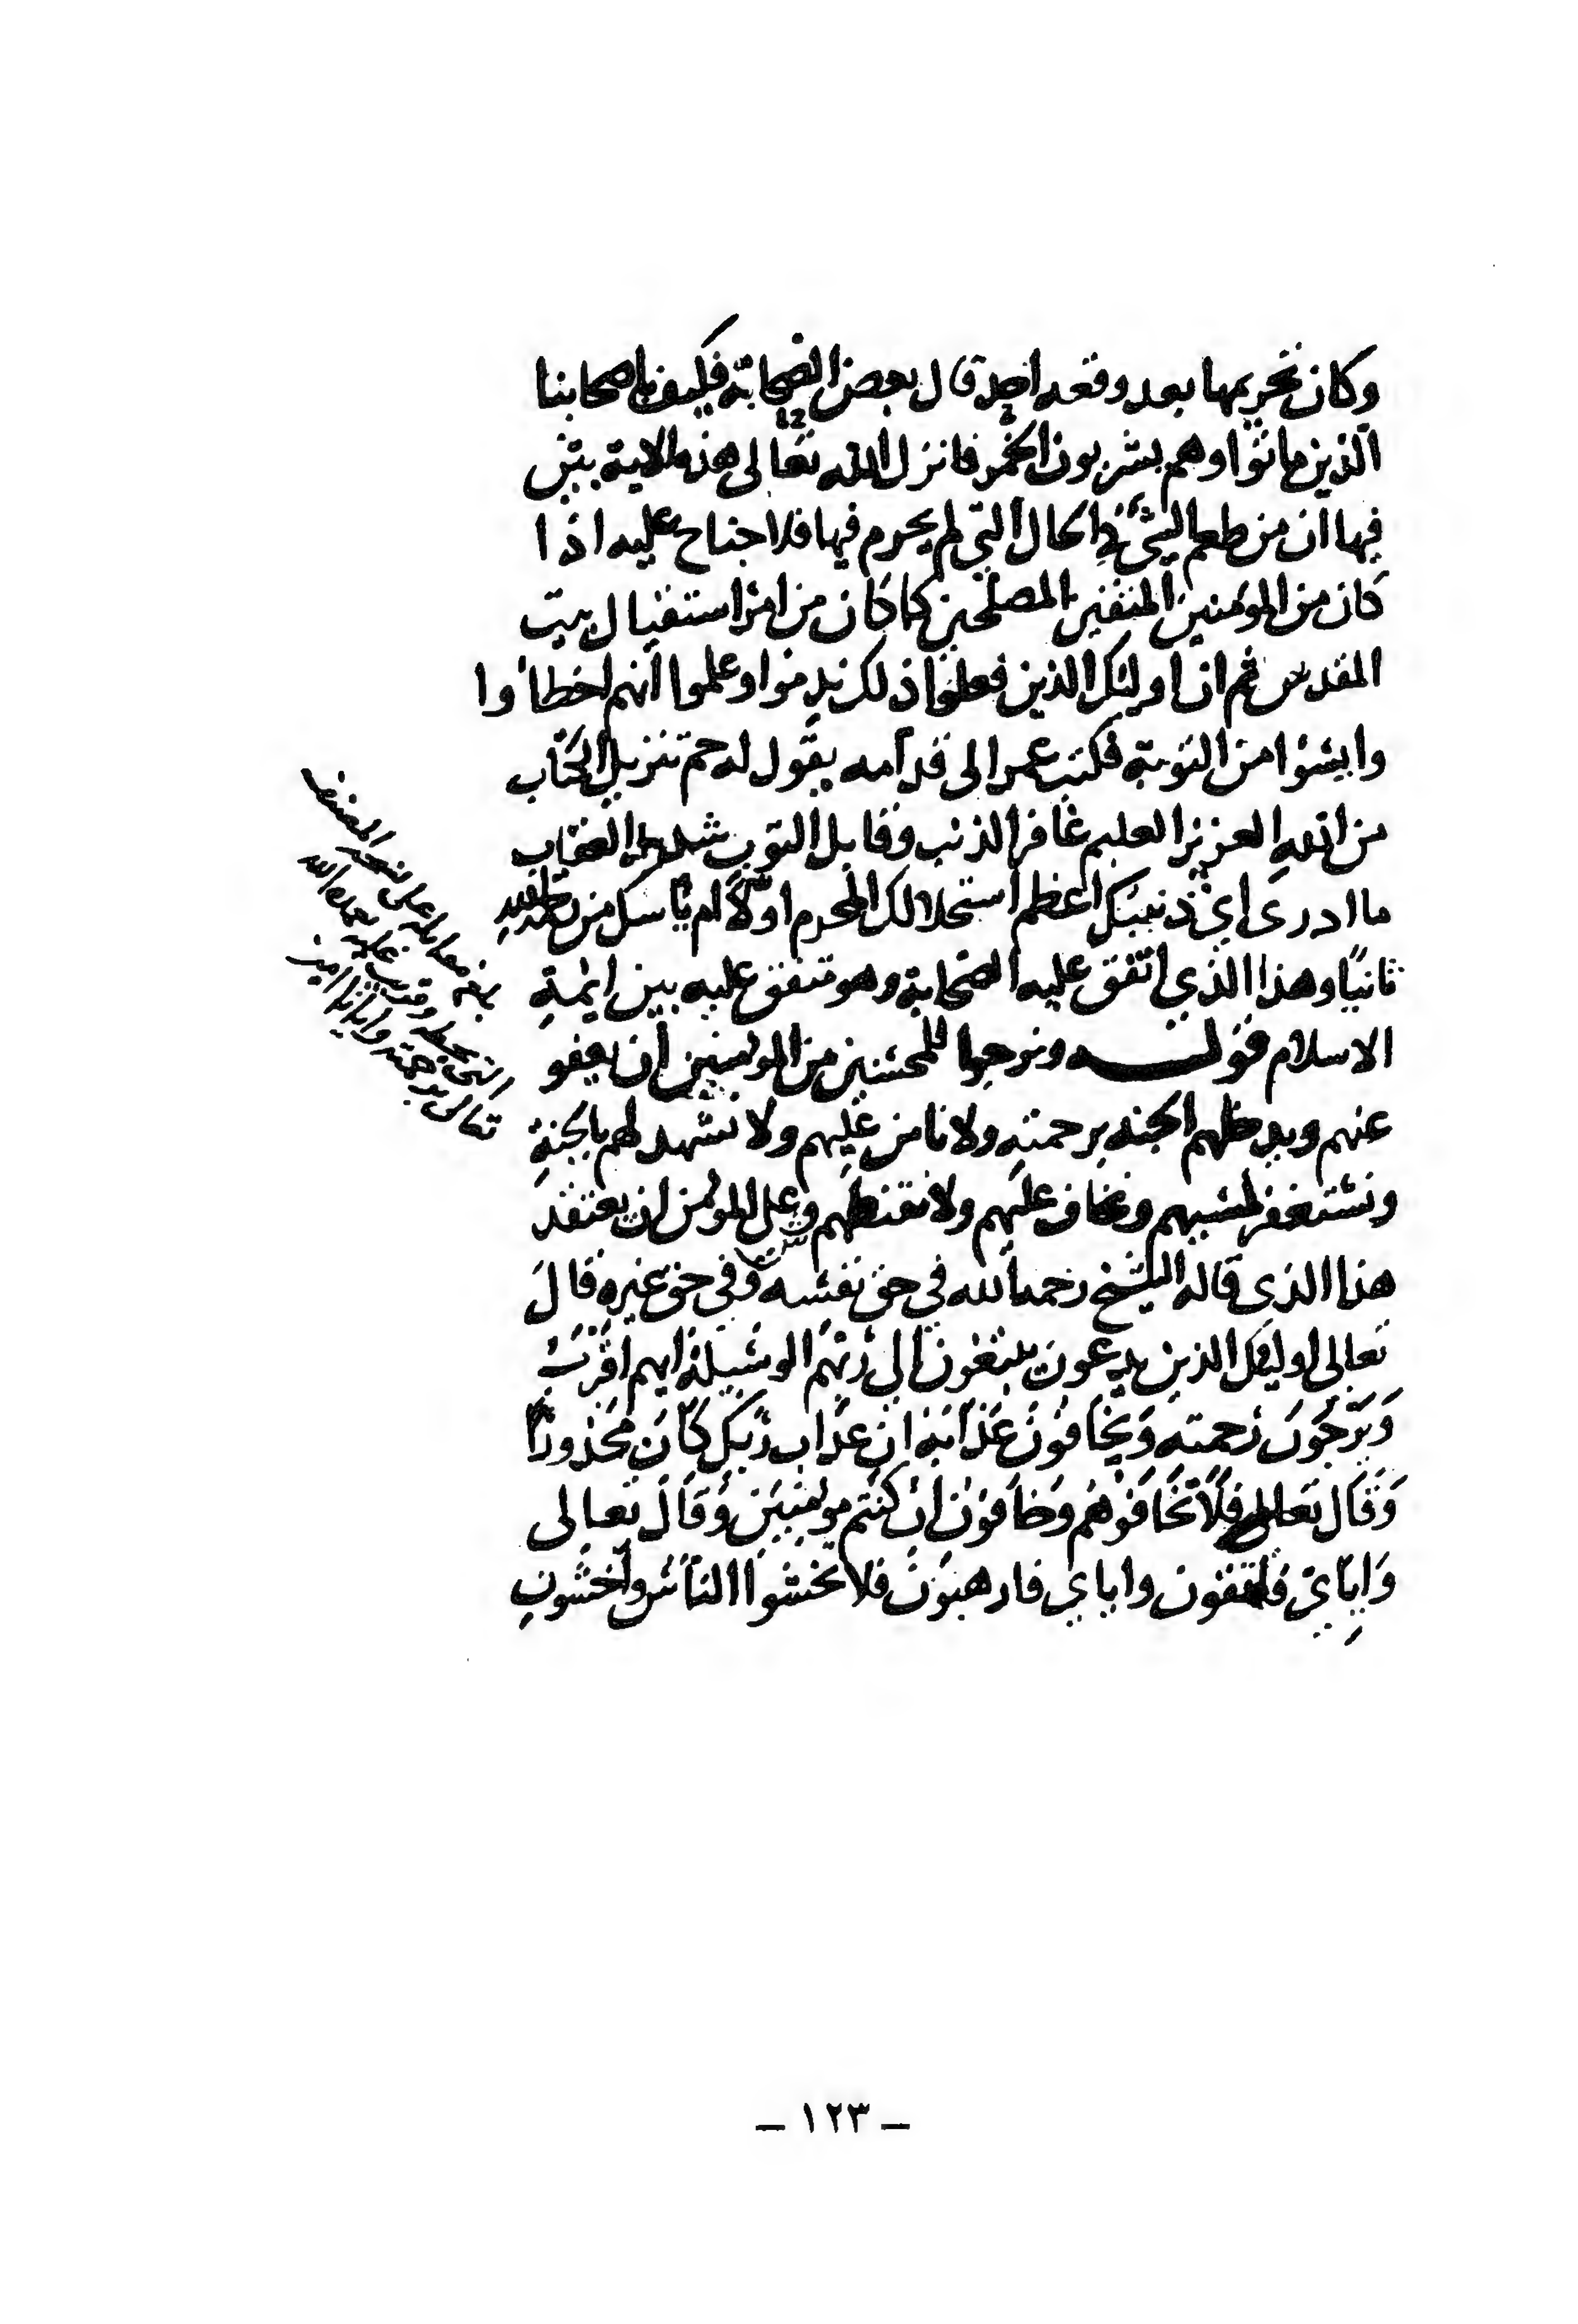 وكان تحريمها بعد وقعه احد قال بعض الصحابة فكيف باصحابنا
الذين ماتوا وهم يشربون الخمر فانزل الله تعالى هذه الاية بيّن
فيها ان من طعم الشيء في الحال التي لم يحرم فيها فلا جناح عليه اذا
كان من المؤمنين المتقين المصلحين كما كان من امر استقبال بيت
المقدس ثم ان اوليك الذين فعلوا ذلك ندموا وعلموا انهم اخطاوا
وايسوا من التوبة فكتب عمر الى قدامه يقول له حم تنزيل الكتاب
من الله العزيز العليم غافر الذنب وقابل التوب شديد العقاب
ما ادرى اي ذنبيك اعظم استحلالك المحرم اولًا ام ياسك من رحمة الله
ثانيًا وهذا الذي اتفق عليه الصحابة وهو متفق عليه بين ايمة
الاسلام قوله ونرجوا للمحسنين من المومنين ان يعفو
عنهم ويدخلهم الجنه برحمته ولا نامن عليهم ولا نشهد لهم بالجنة
ونستغفر لمسيهم ونخاف عليهم ولا نقنطهم وعلى المؤمن ان يعتقد
هذا الذي قاله الشيخ رحمه الله في حق نفسه وفي حق غيره قال
تعالى اوليك الذين يدعون يبتغون الى ربهم الوسيلة ايهم اقرب
وَيَرْجُونَ رحمته وَيَخَافُونَ عَذَابَهُ ان عذاب ربك كَانَ مَحْذُورًا
وَقَال تعالى فَلَا تَخَافُوهُم وَخَافُونِ ان كنتم مومنين وَقَالَ تعالى
وَاِيَّايَ فاتقون واياي فارهبون فلا تخشوا الناس واخشونِ
بلغ مقابلة على نسخة المصنف
التى بخطه
تعالى برحمته وايانا امين
– ١٢٣ –